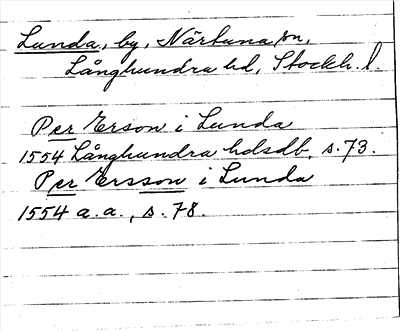 Lunda, by, Närtuna sn,
Långhundra hd, Stockh. l.
Per Erson i Lunda
1554 Långhundra hdsdb, s. 73.
Per Ersson i Lunda
1554 a. a., s. 78.